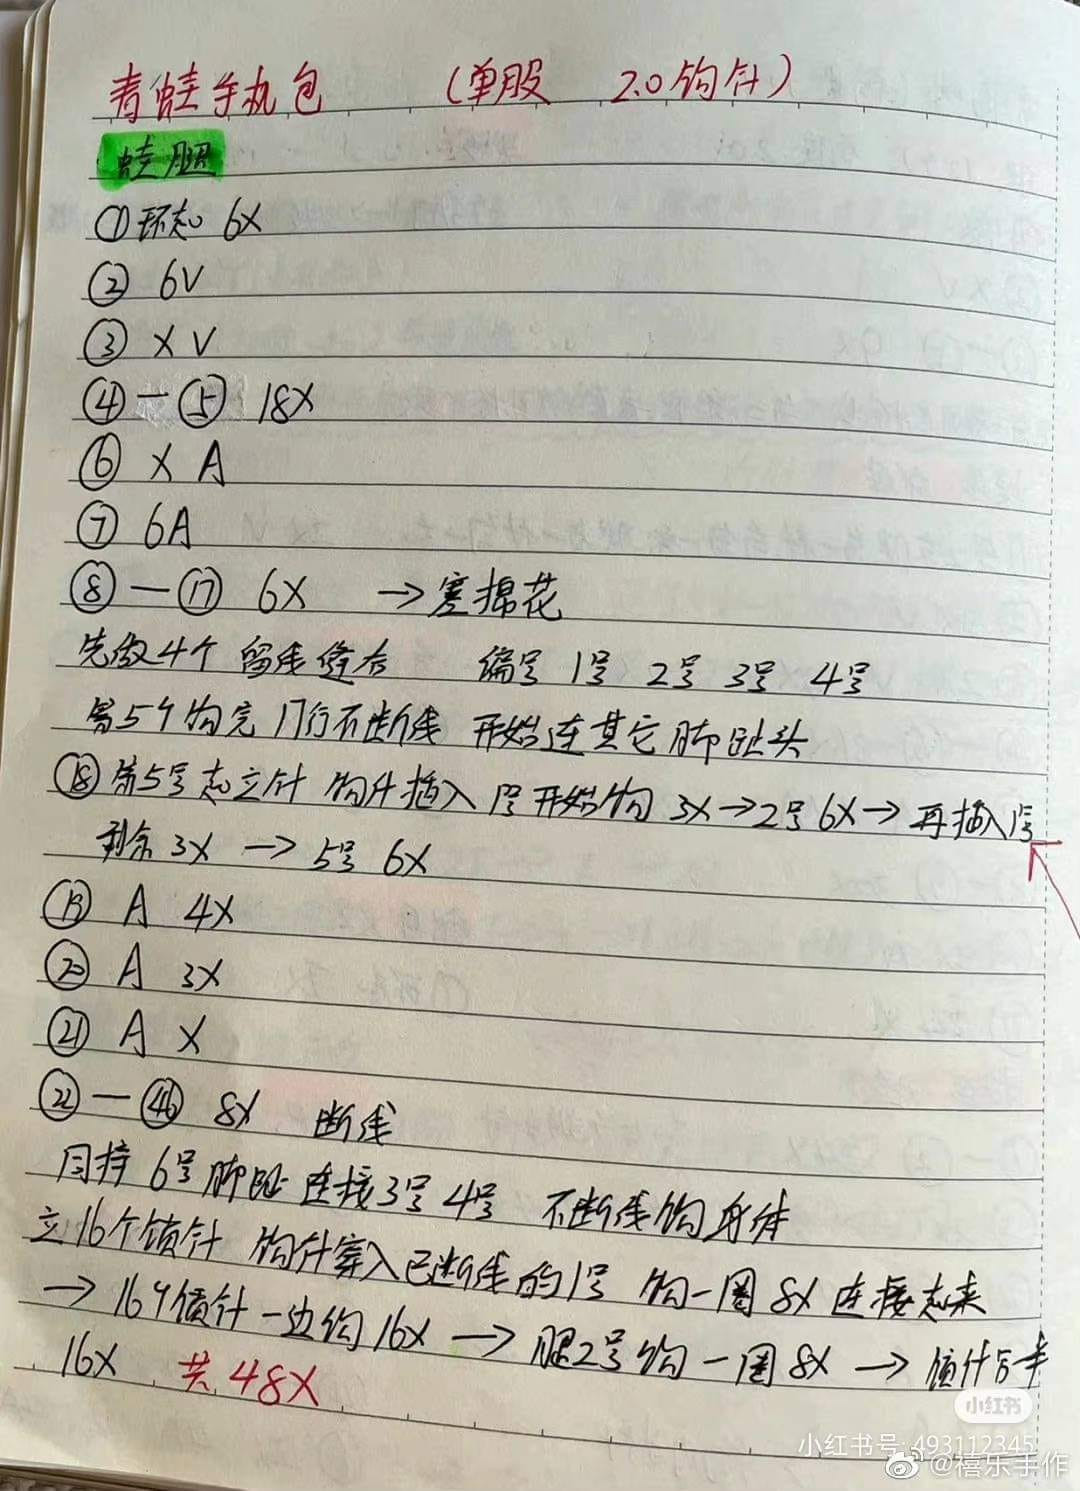 青蛙手机包 (单股 2.0钩针)
蛙腿
①环起 6X
② 6V
③ X V
④—⑤ 18X
⑥ X A
⑦ 6A
⑧—⑰ 6X →塞棉花
先做4个 留线缝合 编号 1号 2号 3号 4号
第5个钩完 17行不断线 开始连其它脚趾头
⑱第5号起立针 钩针插入1号开始钩 3X→2号6X→再插入1号
剩余3X → 5号 6X
⑲ A 4X
⑳ A 3X
㉑ A X
㉒—㊻ 8X 断线
同样 6号脚趾连接3号4号 不断线钩身体
立16个锁针 钩针穿入已断线的1号 钩一圈 8X 连接起来
→ 16个锁针一边钩16X → 腿2号钩一圈 8X → 锁针另半
16X 共48X
小红书
小红书号: 493112345
@禧乐手作